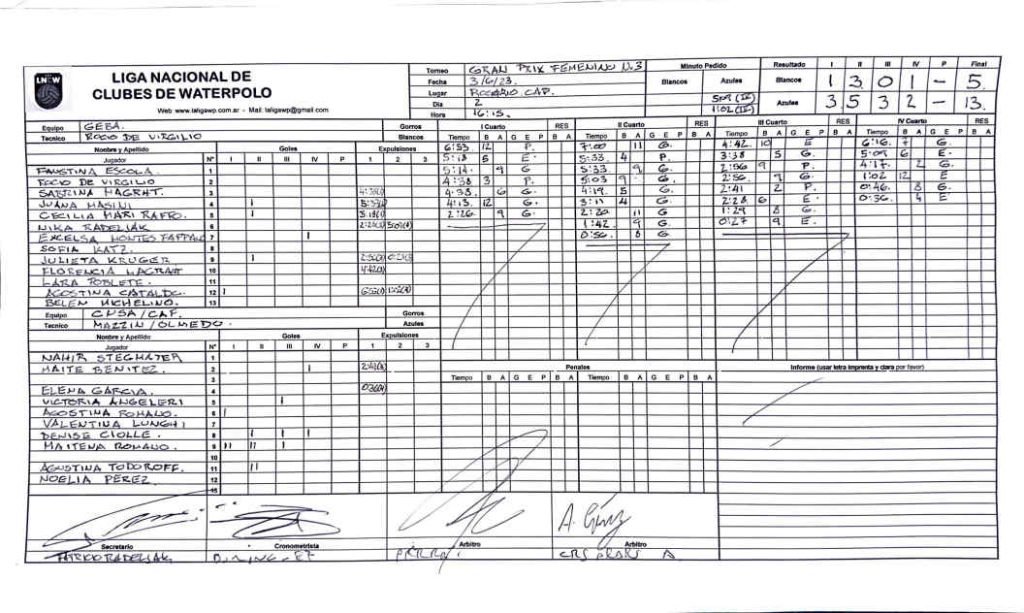 LNCW
LIGA NACIONAL DE
CLUBES DE WATERPOLO
Web: www.laligawp.com.ar - Mail: laligawp@gmail.com
Torneo GRAN PRIX FEMENINO N.3
Fecha 3/6/23
Lugar ROSARIO CAP.
Dia 2
Hora 16:15.
Minuto Pedido
Blancos Azules
5:09 (II)
1:02 (IV)
Resultado I II III IV P Final
Blancos 1 3 0 1 - 5
Azules 3 5 3 2 - 13
Equipo GEBA. Gorros
Tecnico ROCIO DE VIRGILIO Blancos
Nombre y Apellido Goles Expulsiones
Jugador Nº I II III IV P 1 2 3
FAUSTINA ESCOLA. 1
ROCIO DE VIRGILIO 2
SABRINA HAGRAT. 3
JUANA MASINI 4 I
CECILIA MARI RAFFO. 5 I
NIKA RADELJAK 6
EXCELSA MONTES FAPPAN 7 I
SOFIA KATZ. 8
JULIETA KRUGER 9 I
FLORENCIA LAGRAH 10
LARA POBLETE. 11
AGOSTINA CATALDO. 12 I
BELEN MICHELINO. 13
Equipo CPSA/CAF. Gorros
Tecnico MAZZIN/OLMEDO. Azules
Nombre y Apellido Goles Expulsiones
Jugador Nº I II III IV P 1 2 3
NAHIR STEGMAYER 1
MAITE BENITEZ. 2 I
3
ELENA GARCIA. 4
VICTORIA ANGELERI 5 I
AGOSTINA ROMANO. 6 I
VALENTINA LUNGHI 7
DENISE CIOLLE. 8 I I I
MAITENA ROMANO. 9 II II I
10
AGUSTINA TODOROFF. 11 II
NOELIA PEREZ 12
13
I Cuarto RES
Tiempo B A G E P B A
6:53 12 P.
5:18 5 E.
5:14 9 G
4:38 3 P.
4:33 6 G
4:13 12 G
2:26 9 G
II Cuarto RES
Tiempo B A G E P B A
7:00 11 G.
5:33 4 P.
5:33 9 G.
5:03 9 G.
4:19 5 G
3:11 4 G.
2:20 11 G
1:42 9 G
0:56 8 G
III Cuarto RES
Tiempo B A G E P B A
4:42 10 E
3:38 5 G.
2:56 9 P.
2:56 9 G.
2:41 2 P
2:28 6 E
1:29 8 G
0:27 9 E.
IV Cuarto RES
Tiempo B A G E P B A
6:16 7 G.
5:09 6 E.
4:17 2 G
1:02 12 E
0:46 8 G
0:36 4 E
Penales
Tiempo B A G E P B A Tiempo B A G E P B A
Informe (usar letra imprenta y clara por favor)
A. Gómz
Secretario Cronometrista Arbitro Arbitro
PATRICIO RADELJAK